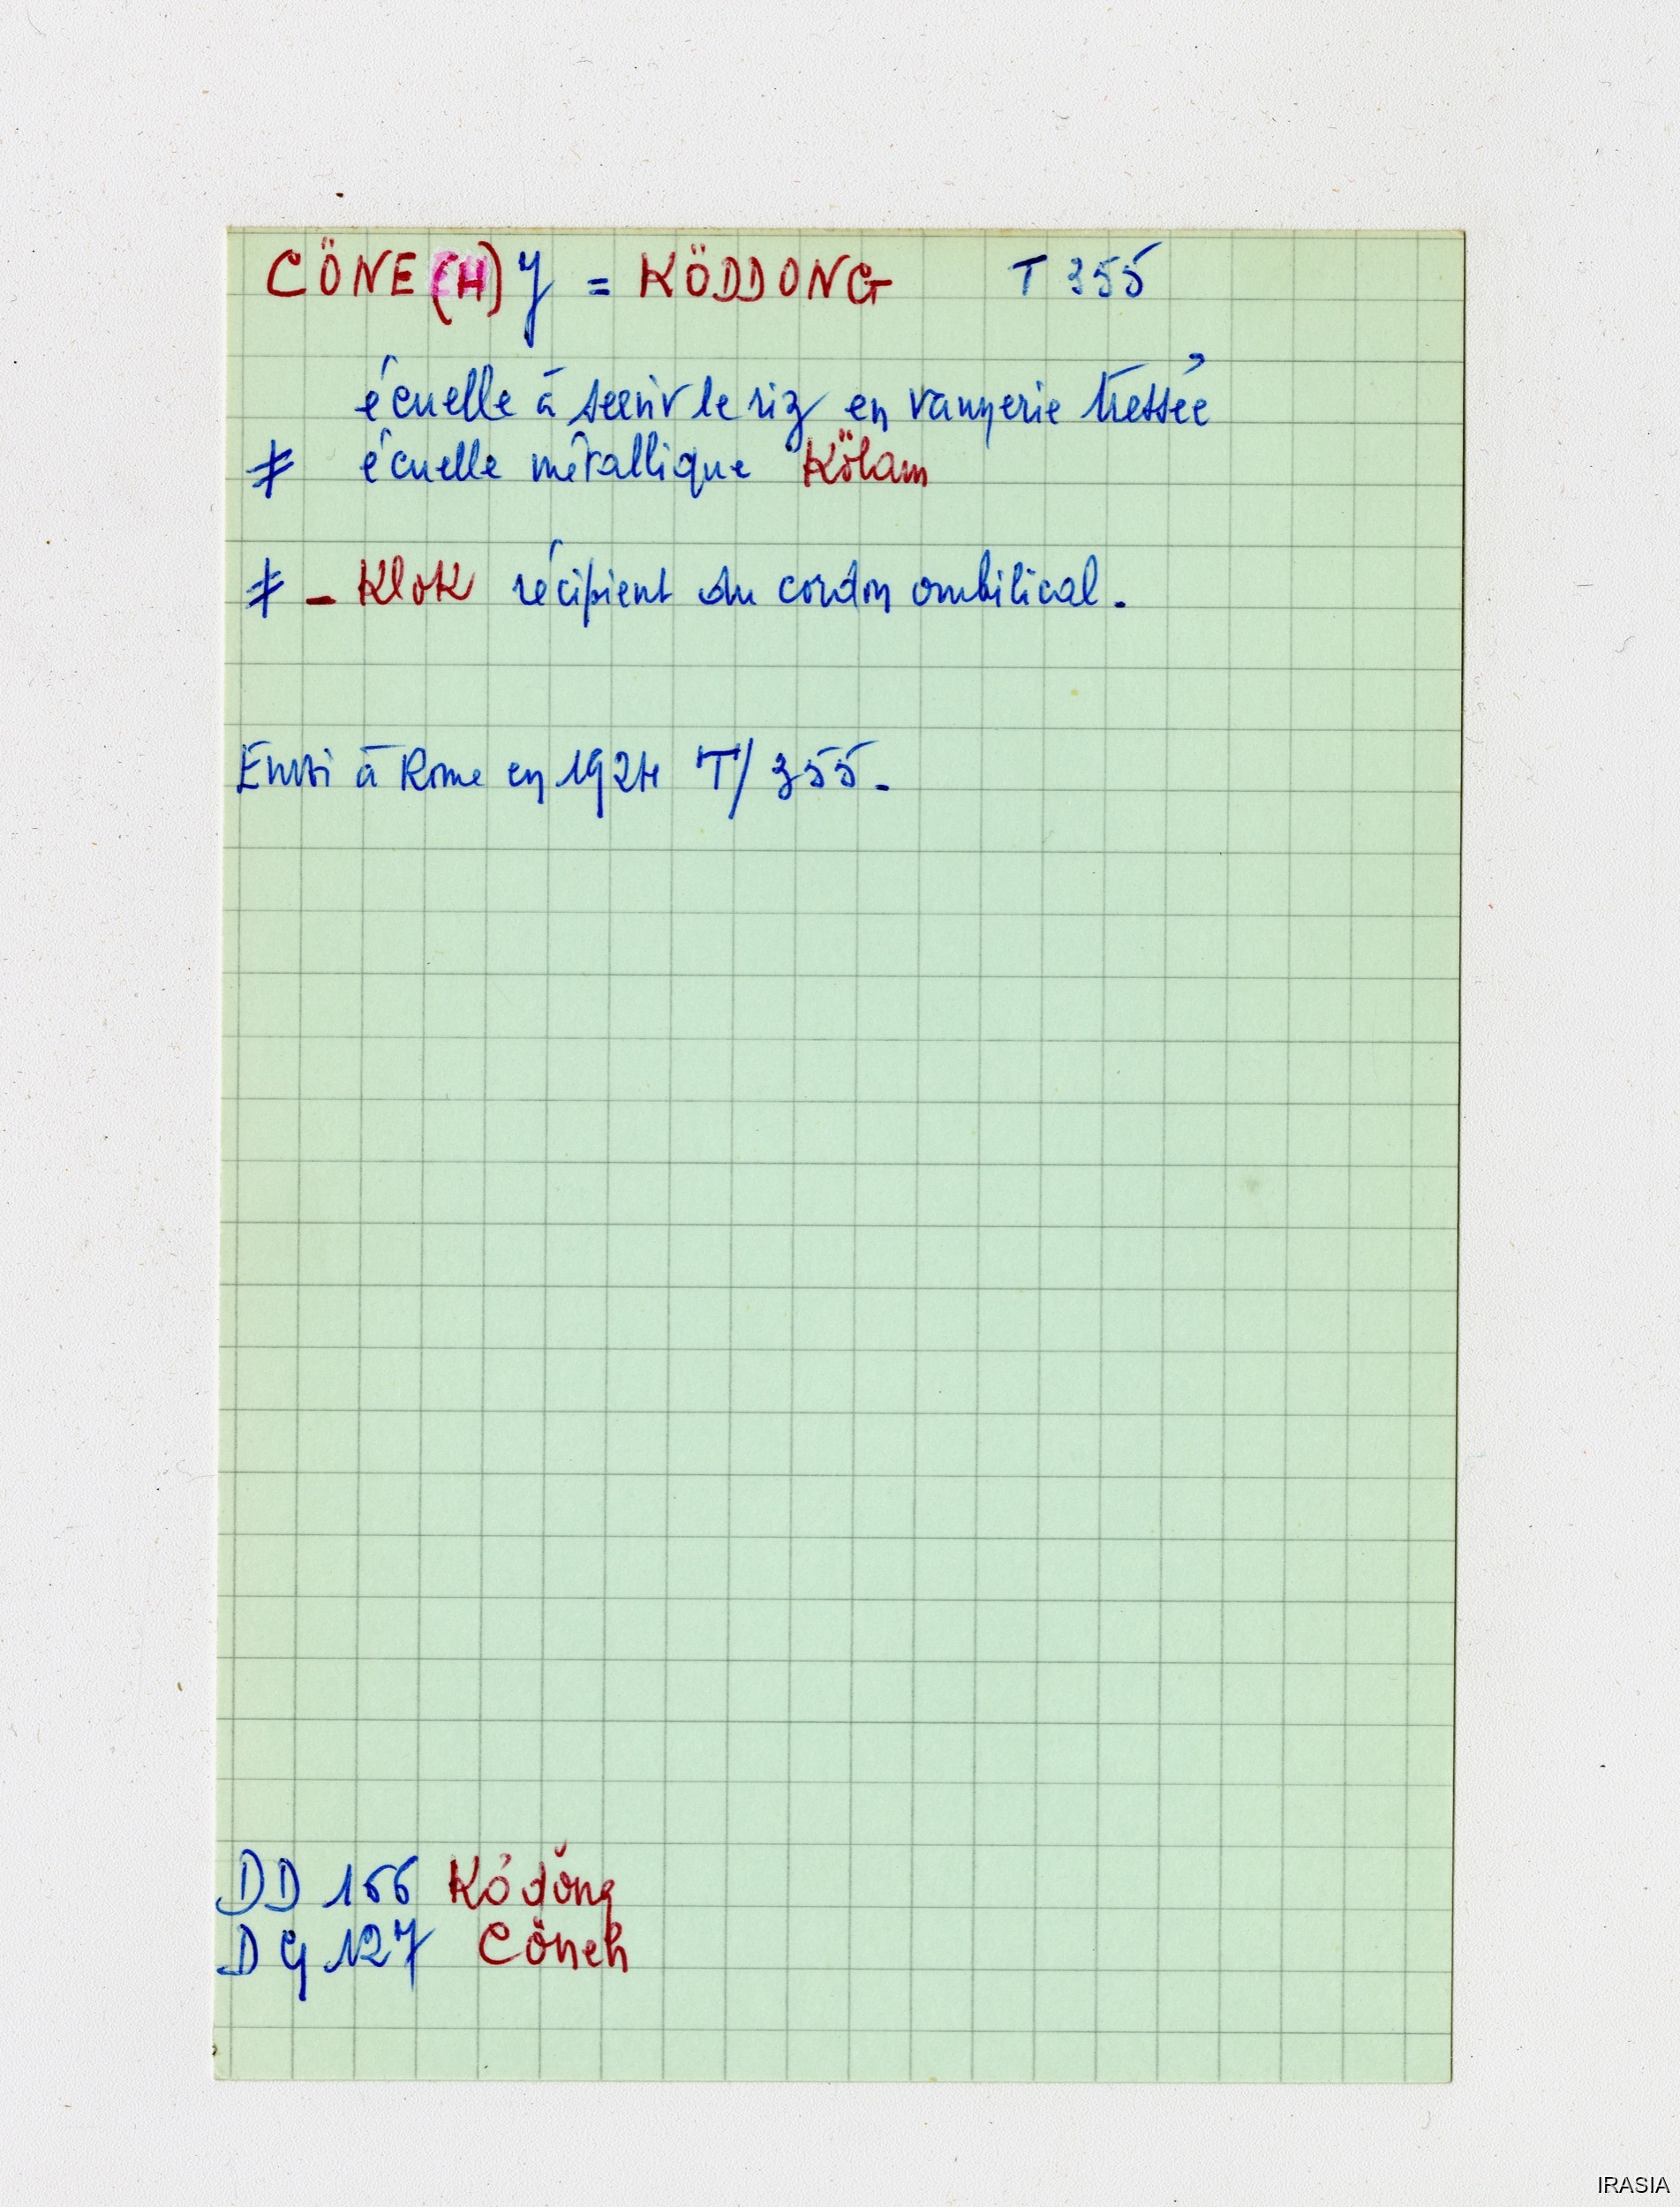 CÖNE(H) y = KÖDDONG T 355
écuelle à servir le riz en vannerie tressée
≠ écuelle métallique Kölam
≠ - Klok récipient du cordon ombilical.
Envoi à Rome en 1924 T/355.
DD 166 Ködŏng
DG 127 Cöneh
IRASIA